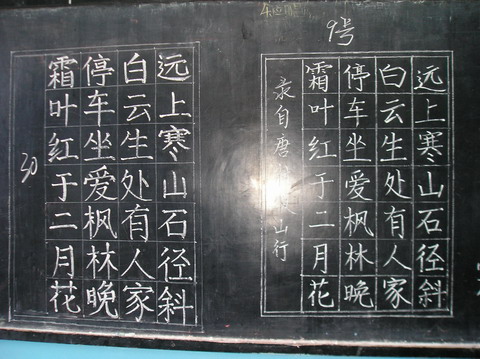 远上寒山石径斜
白云生处有人家
停车坐爱枫林晚
霜叶红于二月花
30
9号
远上寒山石径斜
白云生处有人家
停车坐爱枫林晚
霜叶红于二月花
录自唐 山行